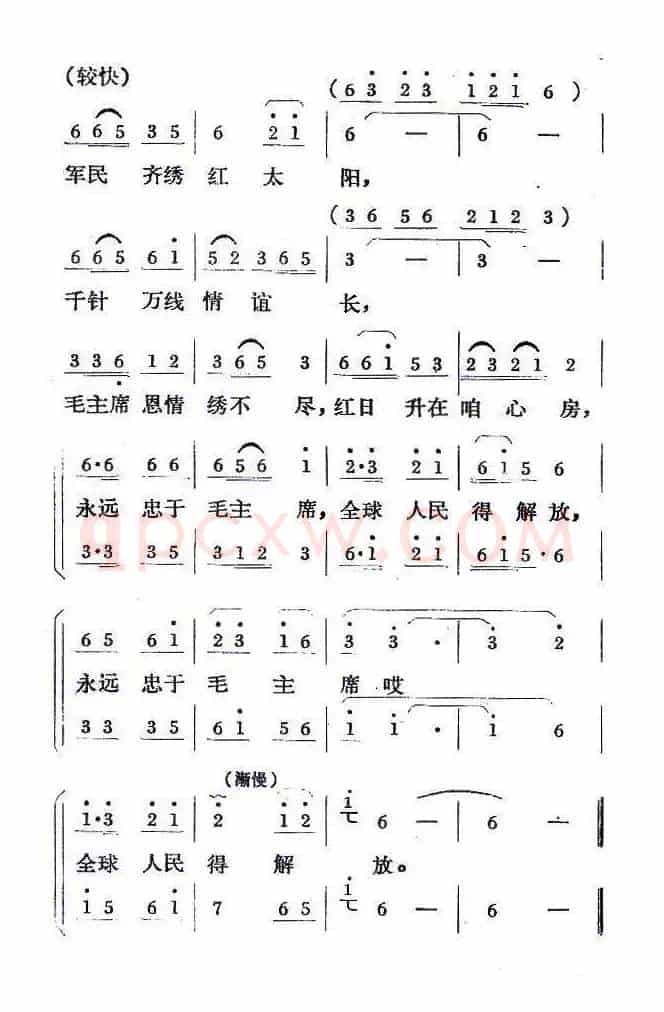 (较快)
(6 3 2 3 1 2 1 6)
6 6 5 3 5 | 6 2 1 | 6 — | 6 — |
军民 齐绣 红 太 阳,
(3 6 5 6 2 1 2 3)
6 6 5 6 1 | 5 2 3 6 5 | 3 — | 3 — |
千针 万线 情 谊 长,
3 3 6 1 2 | 3 6 5 3 | 6 6 1 5 3 | 2 3 2 1 2 |
毛主席 恩情 绣不 尽, 红日 升在 咱 心 房,
6·6 6 6 | 6 5 6 1 | 2·3 2 1 | 6 1 5 6 |
永远 忠于 毛主 席, 全球 人民 得 解 放,
3·3 3 5 | 3 1 2 3 | 6·1 2 1 | 6 1 5·6 |
qpcxw.com
6 5 6 1 | 2 3 1 6 | 3 3 · | 3 2 |
永远 忠于 毛 主 席 哎
3 3 3 5 | 6 1 5 6 | 1 1 · | 1 6 |
(渐慢)
1·3 2 1 | 2 1 2 | 1 6 — | 6 — ‖
全球 人民 得 解 放。
1 5 6 1 | 7 6 5 | 1 6 — | 6 — ‖